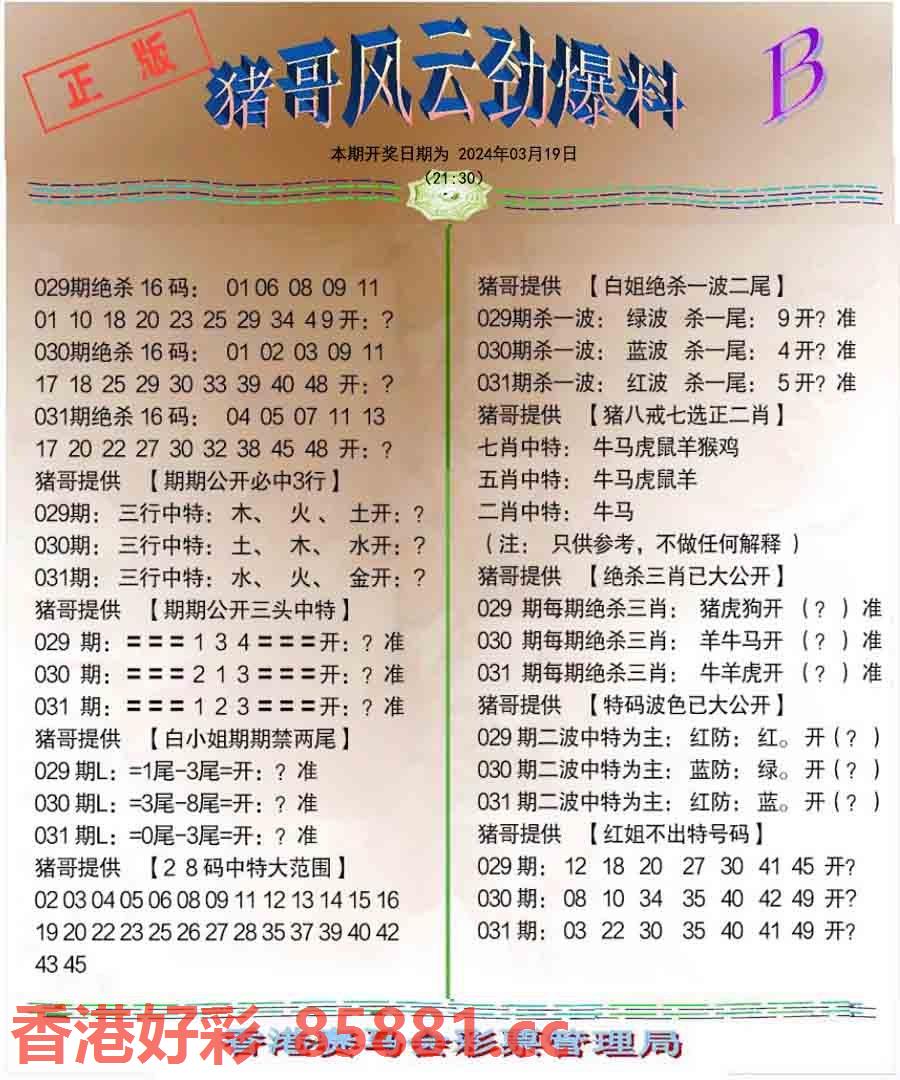 正版
猪哥风云劲爆料
B
本期开奖日期为 2024年03月19日
(21:30)
029期绝杀 16 码： 01 06 08 09 11
01 10 18 20 23 25 29 34 4 9 开：?
030期绝杀 16 码： 01 02 03 09 11
17 18 25 29 30 33 39 40 48 开：?
031期绝杀 16 码： 04 05 07 11 13
17 20 22 27 30 32 38 45 48 开：?
猪哥提供 【期期公开必中3行】
029期： 三行中特： 木、 火 、 土开：?
030期： 三行中特： 土、 木、 水开：?
031期： 三行中特： 水、 火、 金开：?
猪哥提供 【期期公开三头中特】
029 期：＝＝＝1 3 4＝＝＝开：? 准
030 期：＝＝＝2 1 3＝＝＝开：? 准
031 期：＝＝＝1 2 3＝＝＝开：? 准
猪哥提供 【白小姐期期禁两尾】
029 期L：=1尾-3尾=开：? 准
030 期L：=3尾-8尾=开：? 准
031 期L：=0尾-3尾=开：? 准
猪哥提供 【2 8 码中特大范围】
02 03 04 05 06 08 09 11 12 13 14 15 16
19 20 22 23 25 26 27 28 35 37 39 40 42
43 45
猪哥提供 【白姐绝杀一波二尾】
029期杀一波： 绿波 杀一尾： 9 开? 准
030期杀一波： 蓝波 杀一尾： 4 开? 准
031期杀一波： 红波 杀一尾： 5 开? 准
猪哥提供 【猪八戒七选正二肖】
七肖中特： 牛马虎鼠羊猴鸡
五肖中特： 牛马虎鼠羊
二肖中特： 牛马
（注： 只供参考，不做任何解释 ）
猪哥提供 【绝杀三肖已大公开】
029 期每期绝杀三肖： 猪虎狗开 （? ）准
030 期每期绝杀三肖： 羊牛马开 （? ）准
031 期每期绝杀三肖： 牛羊虎开 （? ）准
猪哥提供 【特码波色已大公开】
029 期二波中特为主： 红防： 红。 开（? ）
030 期二波中特为主： 蓝防： 绿。 开（? ）
031 期二波中特为主： 红防： 蓝。 开（? ）
猪哥提供 【红姐不出特号码】
029 期： 12 18 20 27 30 41 45 开?
030 期： 08 10 34 35 40 42 49 开?
031 期： 03 22 30 35 40 41 49 开?
香港好彩 85881.cc
香港赛马会彩票管理局